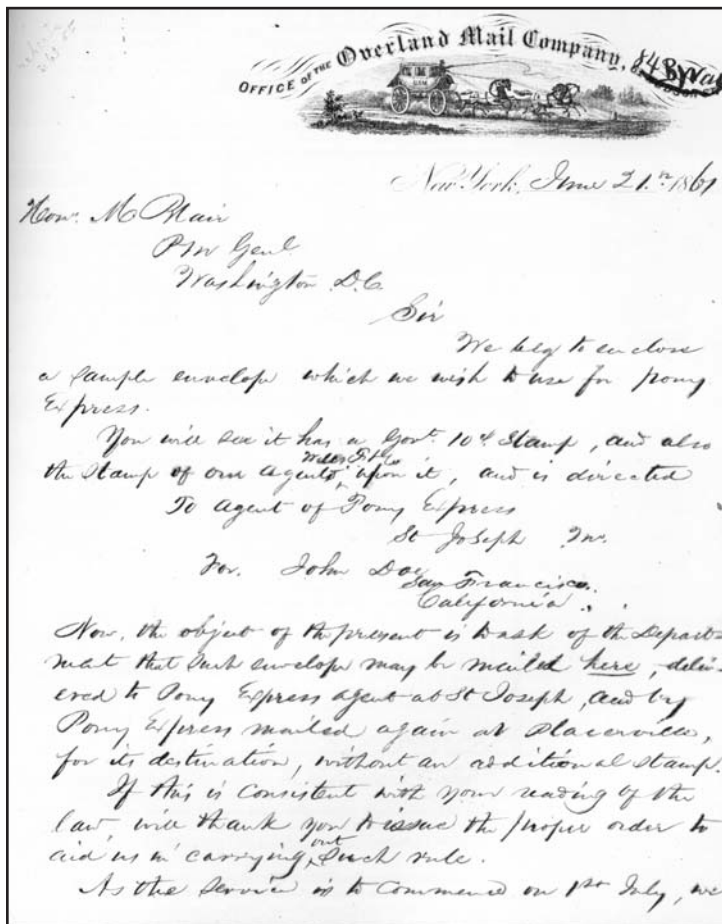 OFFICE OF THE Overland Mail Company, 84 B.Way
New York, June 21.st 1861
Hon. M Blair
P M Genl.
Washington D.C.
Sir
We beg to enclose
a sample envelope which we wish to use for pony
Express.
You will see it has a Govt. 10¢ Stamp, and also
the Stamp of our Agents, Wells F & Co upon it, and is directed
To Agent of Pony Express
St Joseph Mo.
For. John Doe
San Francisco.
California.
Now, the object of the present is to ask of the Depart-
ment that such envelope may be mailed here, deliv-
ered to Pony Express agent at St Joseph, and by
Pony Express mailed again at Placerville,
for its destination, without an additional stamp.
If this is consistent with your reading of the
law, will thank you to issue the proper order to
aid us in carrying out such rule.
As the service is to commence on 1st July, we